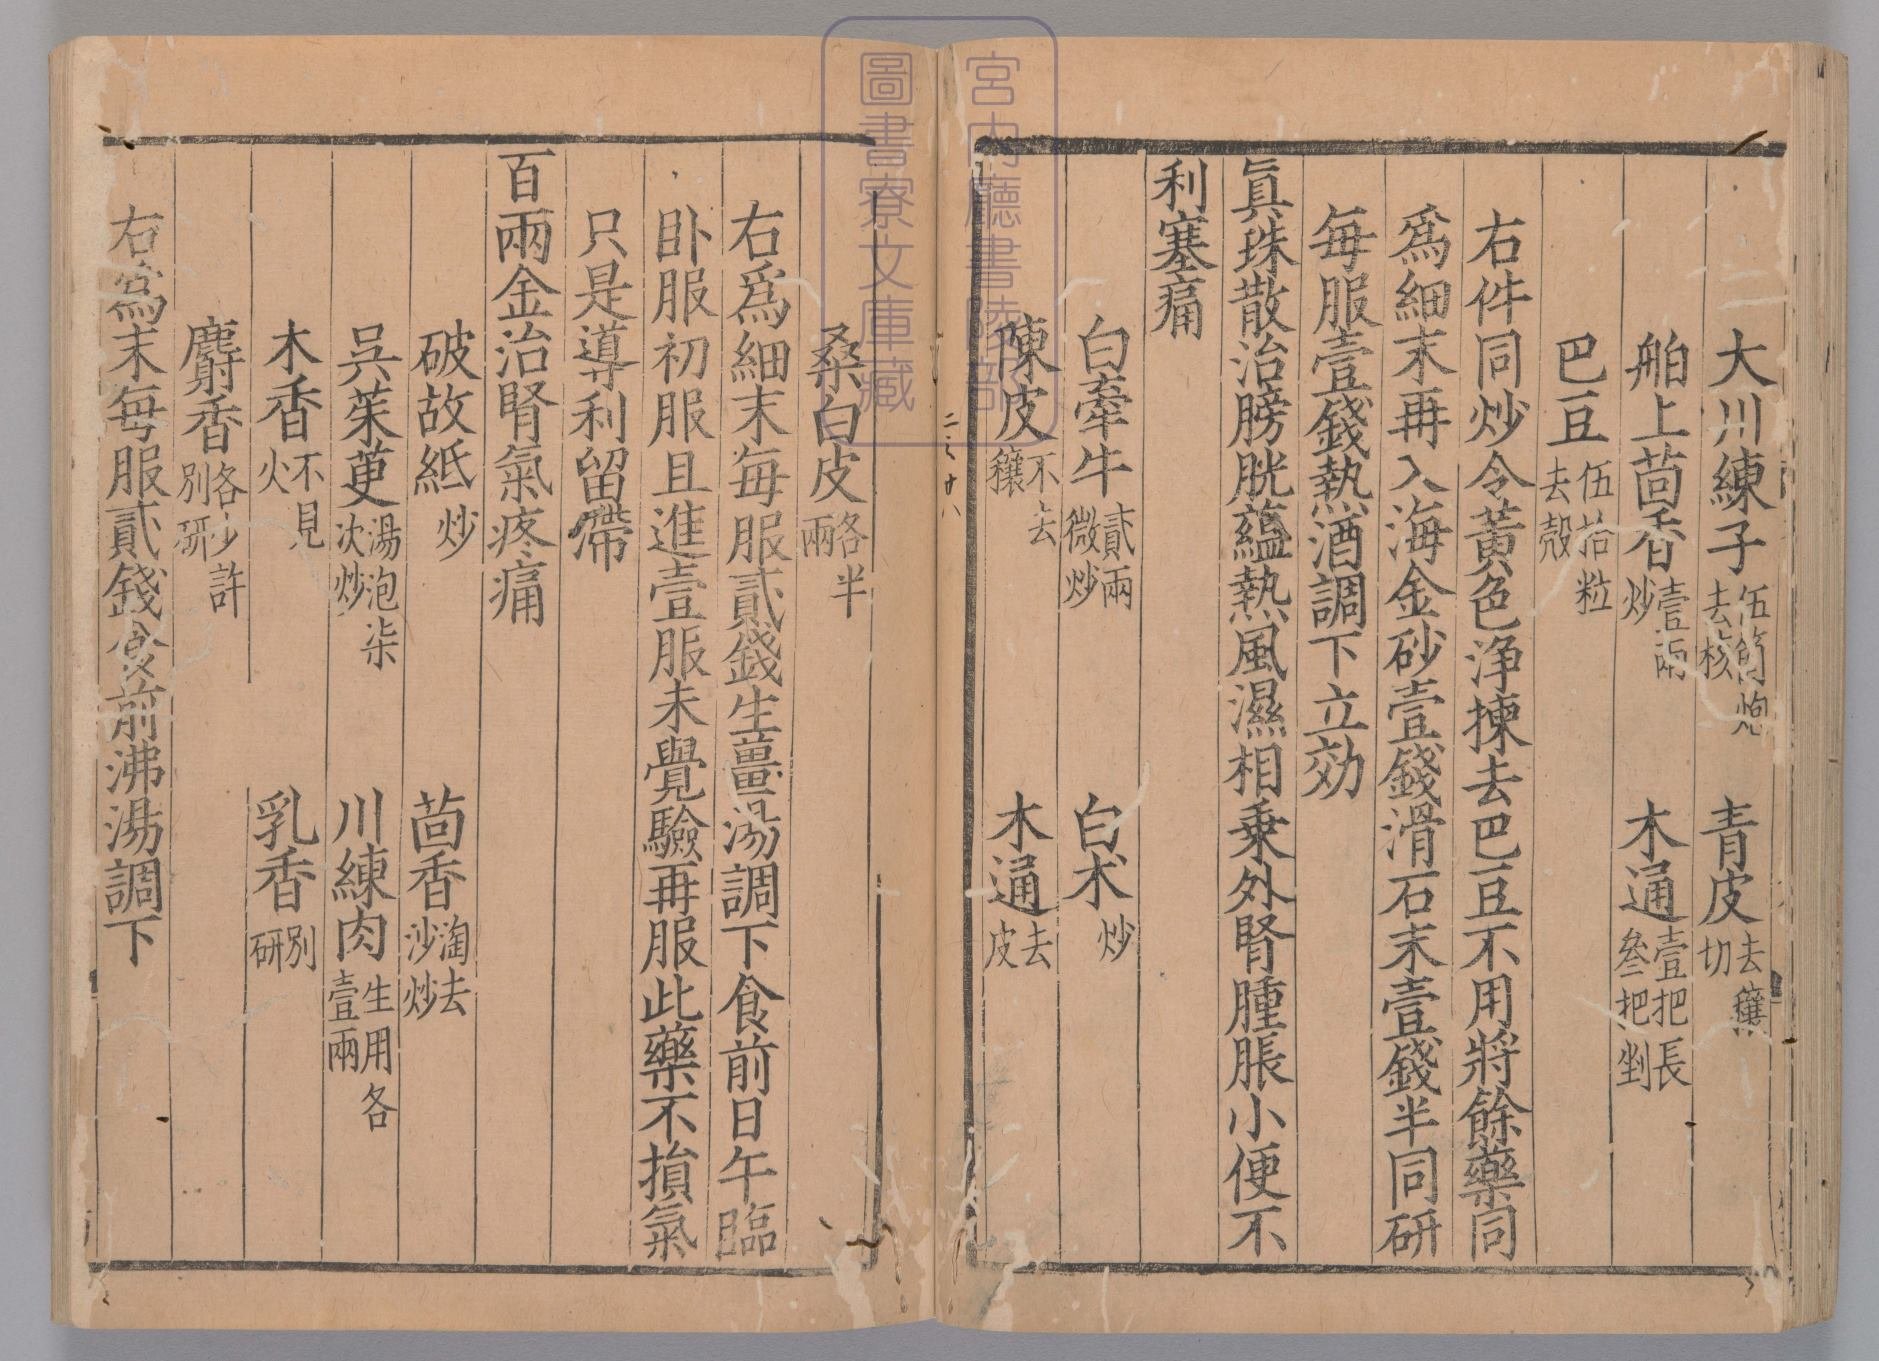 大川練子伍箇炮去核　青皮去穰切
舶上茴香壹兩炒　木通壹把長叄把剉
巴豆伍拾粒去殼
右件同炒令黃色淨揀去巴豆不用將餘藥同
爲細末再入海金砂壹錢滑石末壹錢半同研
每服壹錢熱酒調下立効
眞珠散治膀胱蘊熱風濕相乗外腎腫脹小便不
利塞痛
白牽牛貳兩微炒　白术炒
陳皮不去穰　木通去皮
桑白皮各半兩
右爲細末每服貳錢生薑湯調下食前日午臨
卧服初服且進壹服未覺驗再服此藥不損氣
只是導利留滯
百兩金治腎氣疼痛
破故紙炒　茴香淘去沙炒
吳茱萸湯泡柒次炒　川練肉生用各壹兩
木香不見火　乳香別研
麝香各少許別研
右爲末每服貳錢食前沸湯調下
宮内廳書陵部
圖書寮文庫藏